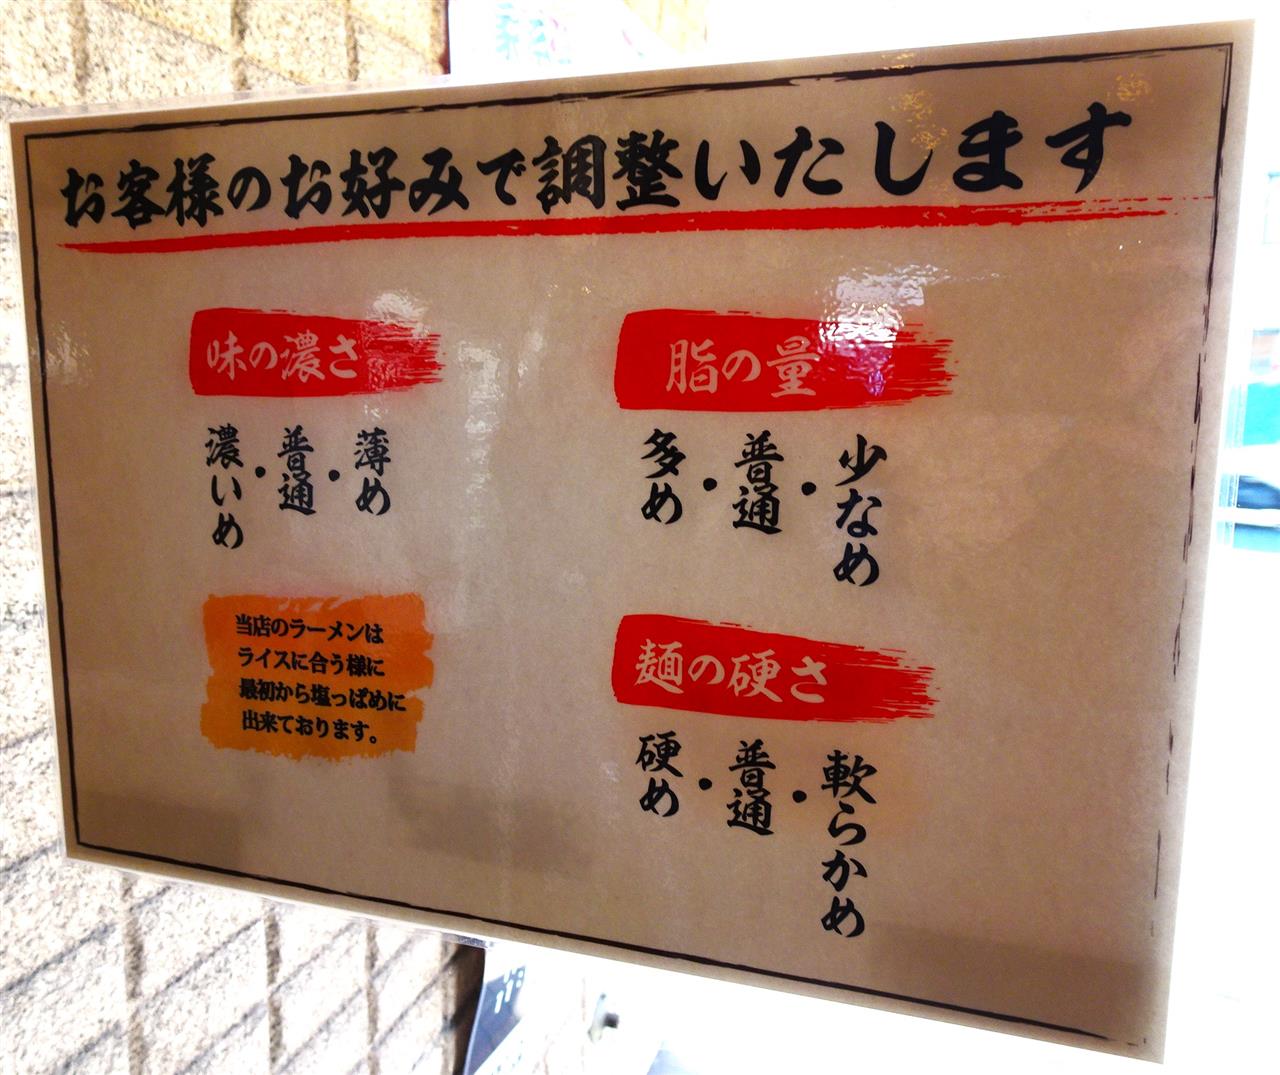 お客様のお好みで調整いたします
味の濃さ
薄め・普通・濃いめ
脂の量
少なめ・普通・多め
麺の硬さ
軟らかめ・普通・硬め
当店のラーメンは
ライスに合う様に
最初から塩っぱめに
出来ております。